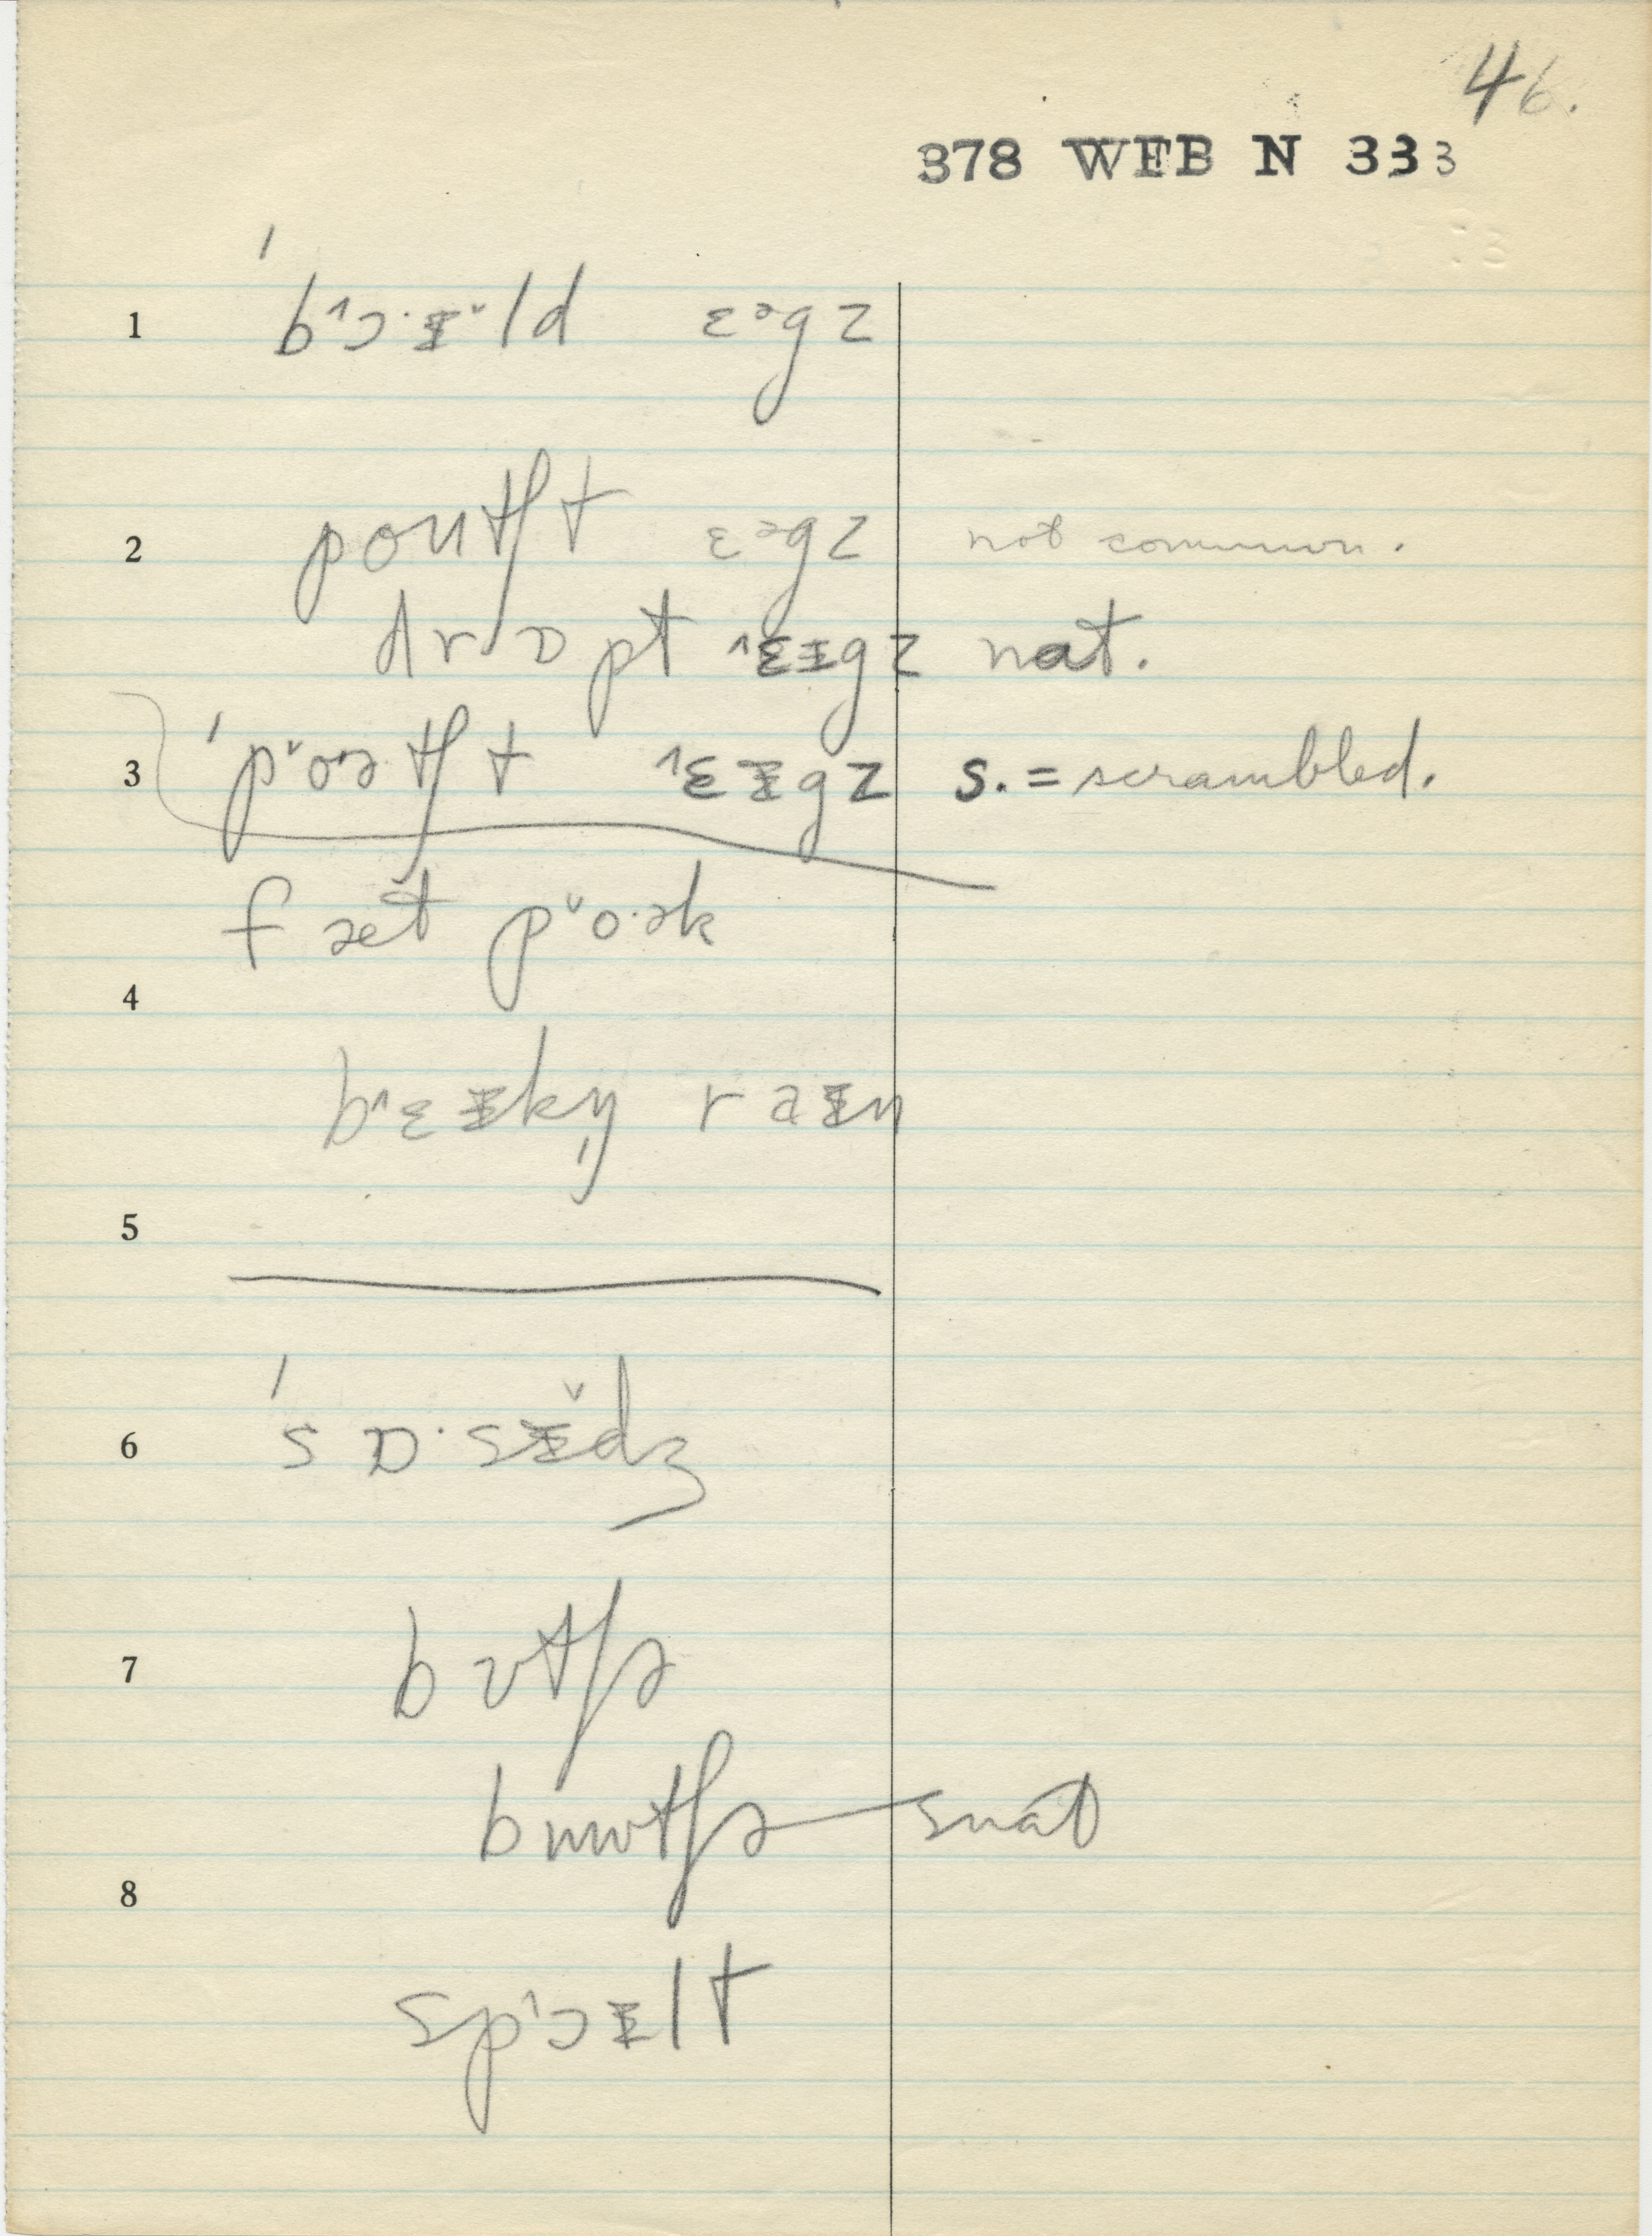 46.
378 WFB N 333
1 ˈb˄ɔ·ɪ̵ˇld ɛᵊgz
2 poutʃt ɛᵊgz not common.
drɒpt ˄ɛ˅ɪ̵gz nat.
3 ˈp˅oətʃt ˄ɛ˅ɪ̵gz s. = scrambled.
fæt p˅o·ək
4
b˄ɛɪ̵kn̩ raɪ̵n
5
6 ˈsɒ·sɪ̵̆dʒ
7 bʊtʃə
bɯʊtʃə snat
8
sp˄ɔɪ̵lt